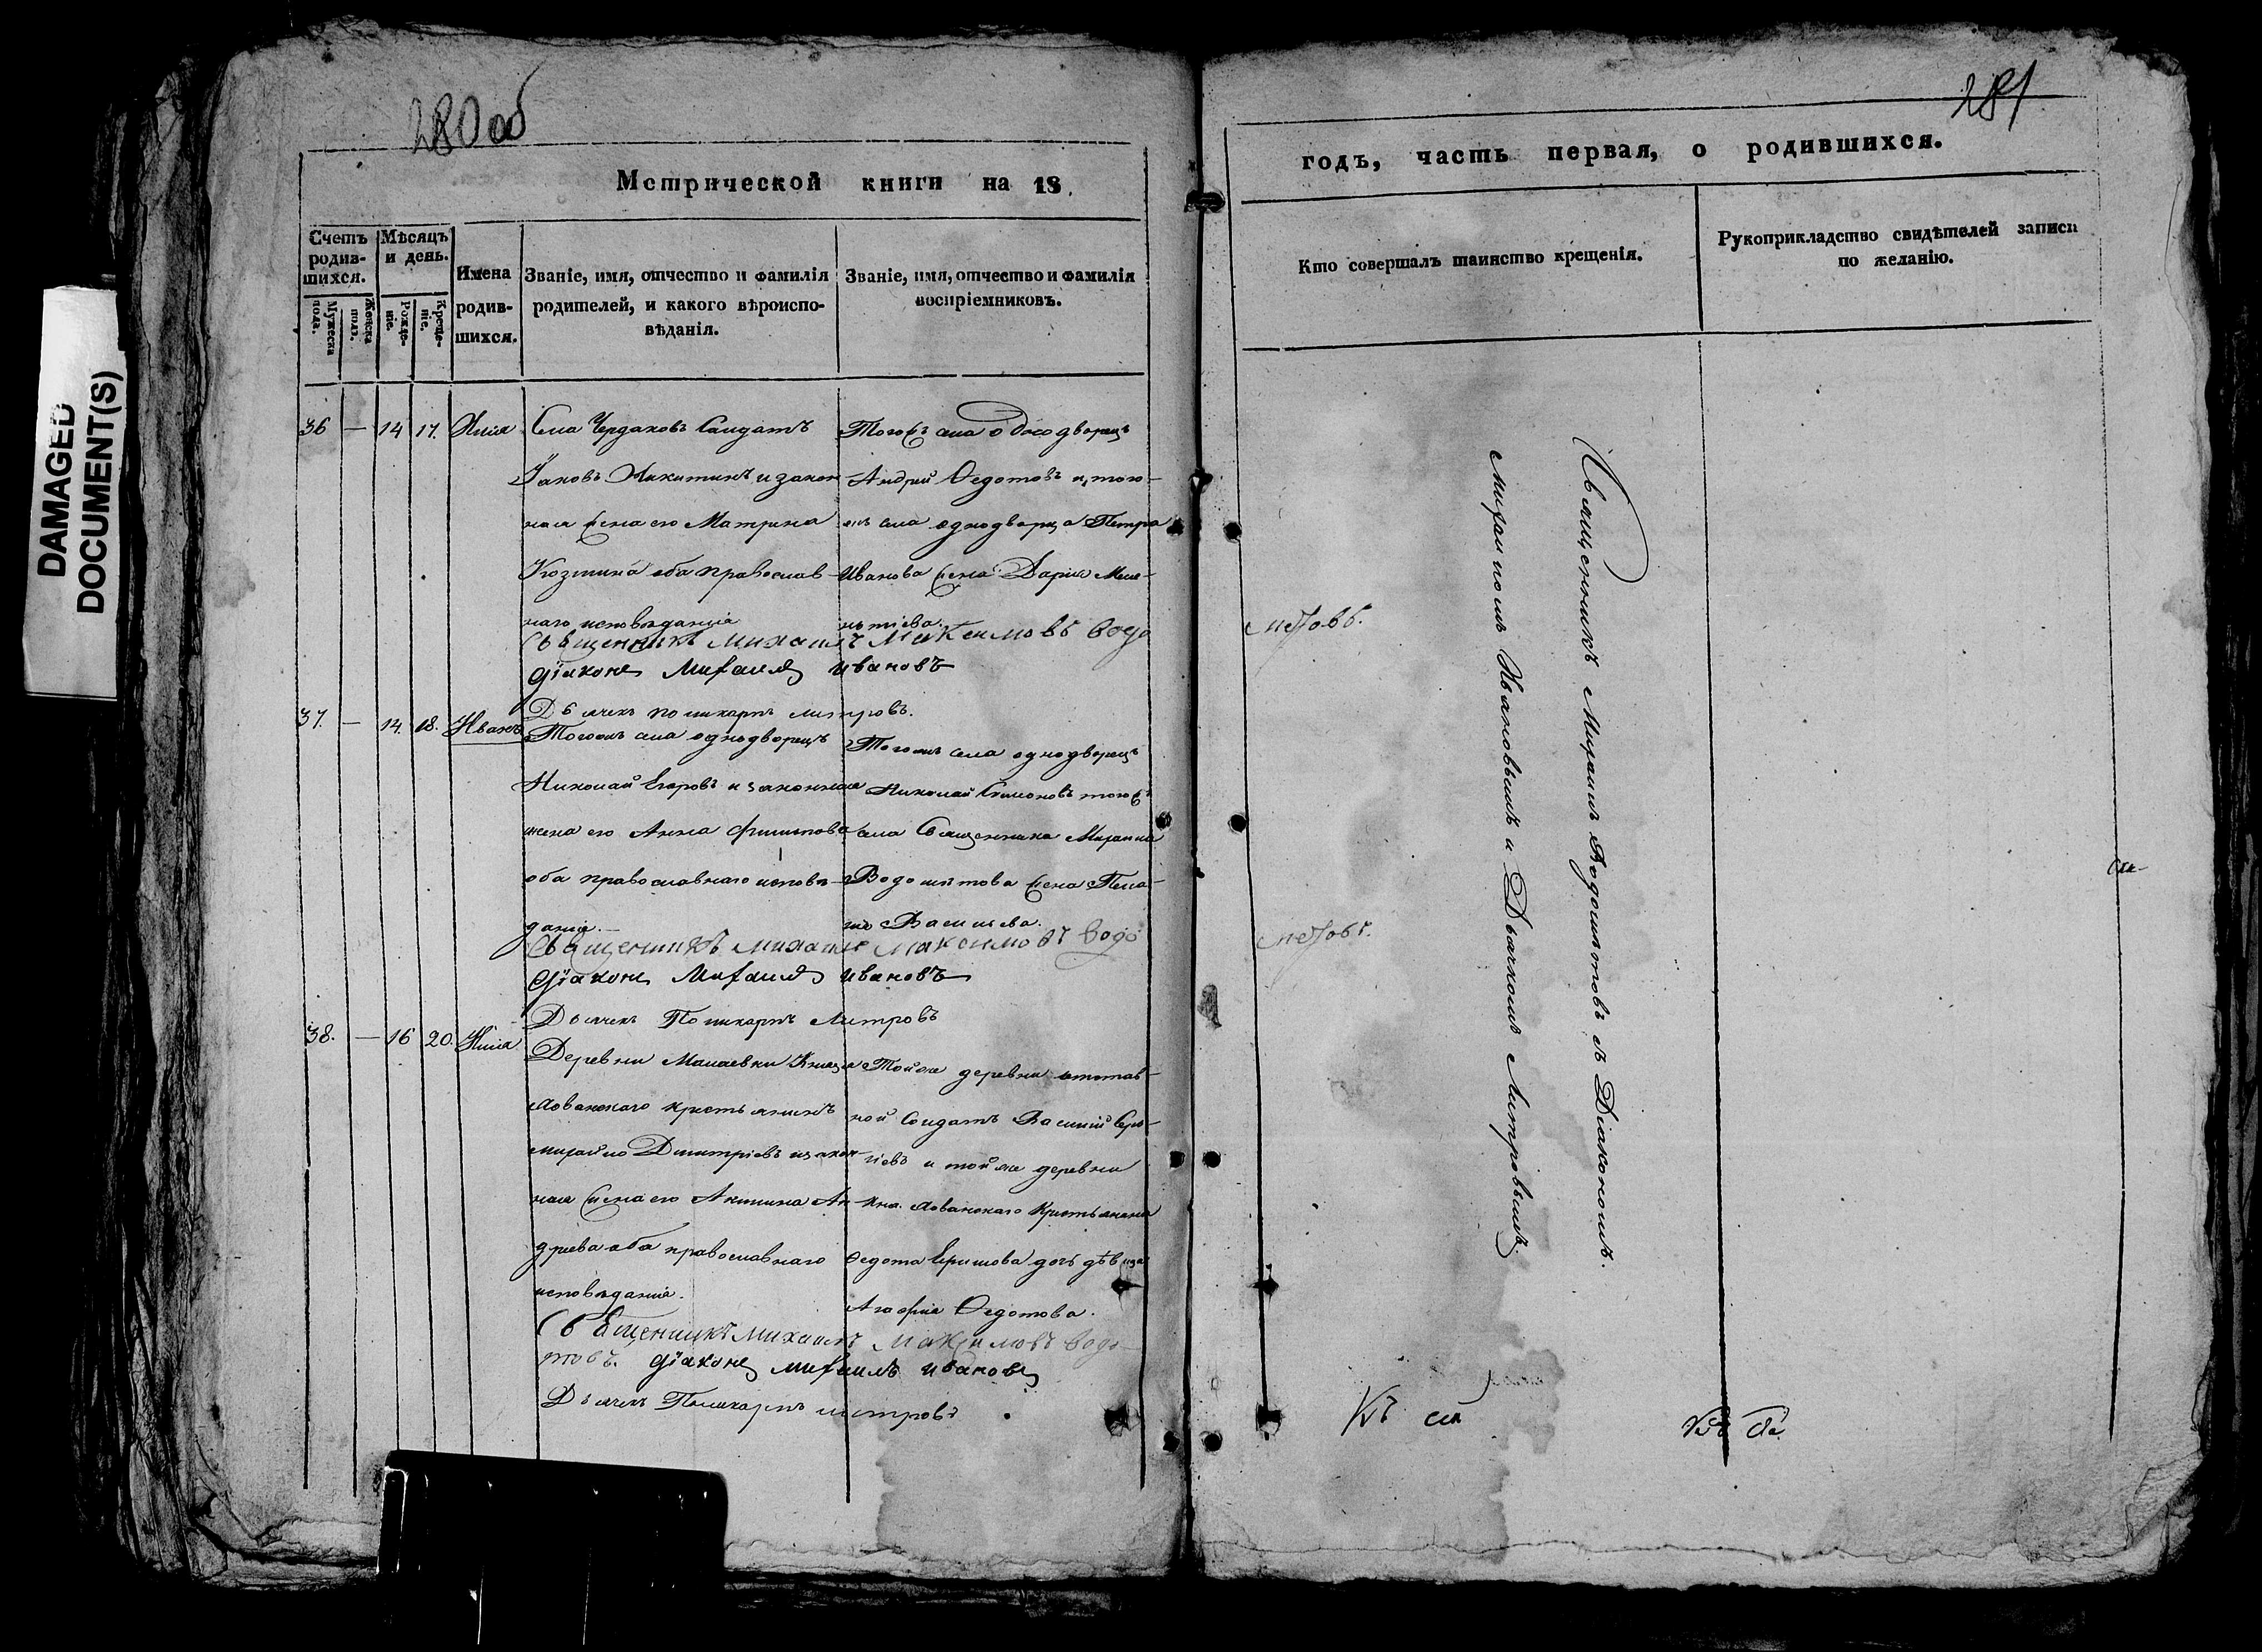 DAMAGED
DOCUMENT(S)
280 об
Метрической книги на 18
Счетъ родившихся.
Мужеска пола.
Женска пола.
Мѣсяцъ и день.
Рождение.
Крещение.
Имена родившихся.
Званіе, имя, отчество и фамилія
родителей, и какого вѣроиспо-
вѣданія.
Званіе, имя, отчество и фамилія
воспріемниковъ.
36 — 14 17. Илія
Села Чердаковъ Салдатъ
Іаковъ Никитинъ и закон
ная жена его Матрена
Козмина оба православ-
наго исповѣданія
Тогожъ села однодворецъ
Андрей Ѳедотовъ и того-
жъ села однодворца Петра
Иванова жена Дарія
Священникъ Михаилъ Максимовъ Водо
діаконъ Михаилъ Ивановъ
Дьячекъ Поликарпъ Митровъ.
37. — 14. 18. Иванъ
Тогожъ села однодворецъ
Николай Егоровъ и законная
жена его Анна Филипова
оба православнаго исповѣ-
данія.
Тогожъ села однодворецъ
Николай Симоновъ тогожъ
села Священника Михаила
Водолитова жена Пела-
Васильева.
Священникъ Михаилъ Максимовъ Водо
діаконъ Михаилъ Ивановъ
Дьячекъ Поликарпъ Митровъ
38. — 16 20. Илія
Деревни Малаевки Князя
Лованскаго крестьянинъ
Михайло Дмитріевъ и закон-
ная жена его Акилина Ан-
дріева оба православнаго
исповѣданія.
Тойже деревни отстав-
ной Солдатъ Василій Сер-
гіевъ и тойже деревни
Кня. Лованскаго Крестьянина
Ѳедота дочь дѣвица
Агафія Ѳедотова.
Священникъ Михаилъ Максимовъ Водо-
діаконъ Михаилъ Ивановъ
Дьячекъ Поликарпъ Митровъ
281
годъ, часть первая, о родившихся.
Кто совершалъ таинство крещенія.
Рукоприкладство свидѣтелей записи
по желанію.
Священникъ Михаилъ Водолитовъ съ Діакономъ
Михаиломъ Ивановымъ и Дьячкомъ Митровымъ.